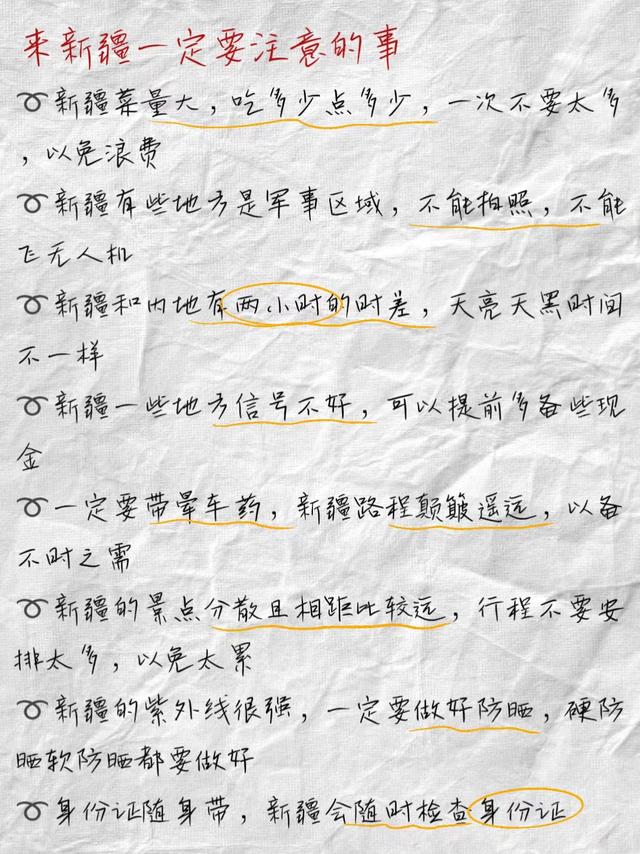 来新疆一定要注意的事
新疆菜量大，吃多少点多少，一次不要太多
，以免浪费
新疆有些地方是军事区域，不能拍照，不能
飞无人机
新疆和内地有两小时的时差，天亮天黑时间
不一样
新疆一些地方信号不好，可以提前多备些现
金
一定要带晕车药，新疆路程颠簸遥远，以备
不时之需
新疆的景点分散且相距比较远，行程不要安
排太多，以免太累
新疆的紫外线很强，一定要做好防晒，硬防
晒软防晒都要做好
身份证随身带，新疆会随时检查身份证